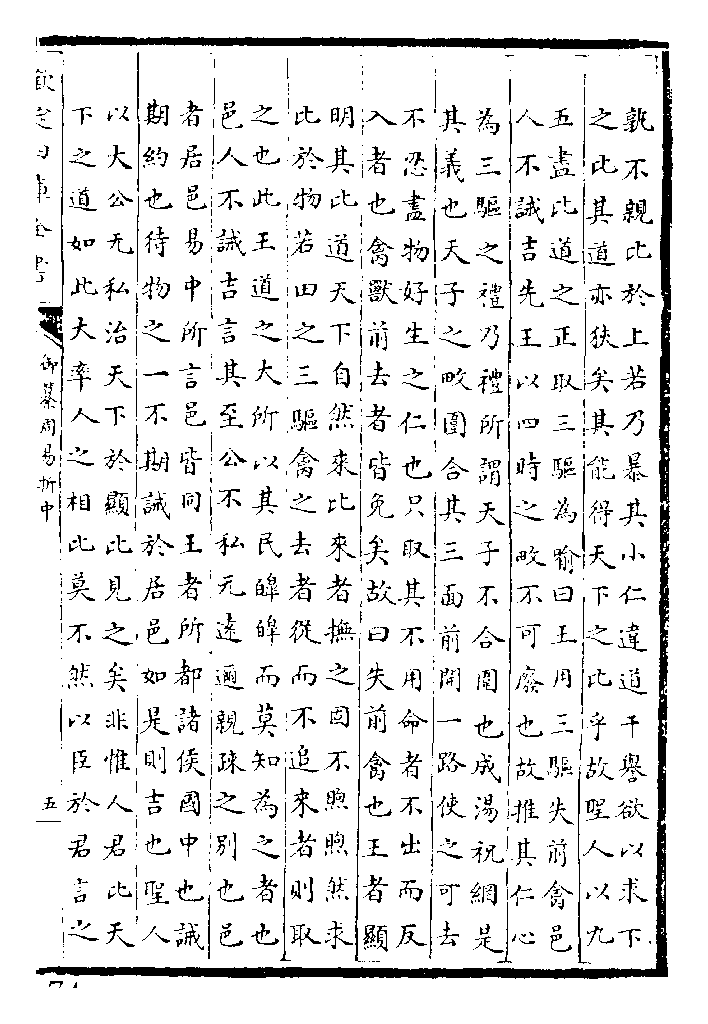 孰不親比於上若乃暴其小仁違道干譽欲以求下
之比其道亦狹矣其能得天下之比乎故聖人以九
五盡比道之正取三驅為喻曰王用三驅失前禽邑
人不誡吉先王以四時之畋不可廢也故推其仁心
為三驅之禮乃禮所謂天子不合圍也成湯祝網是
其義也天子之畋圍合其三面前開一路使之可去
不忍盡物好生之仁也只取其不用命者不出而反
入者也禽獸前去者皆免矣故曰失前禽也王者顯
明其比道天下自然來比來者撫之固不煦煦然求
比於物若田之三驅禽之去者從而不追來者則取
之也此王道之大所以其民皥皥而莫知為之者也
邑人不誡吉言其至公不私无遠邇親疎之別也邑
者居邑易中所言邑皆同王者所都諸侯國中也誡
期約也待物之一不期誡於居邑如是則吉也聖人
以大公无私治天下於顯比見之矣非惟人君比天
下之道如此大率人之相比莫不然以臣於君言之
欽定四庫全書
御纂周易折中
五